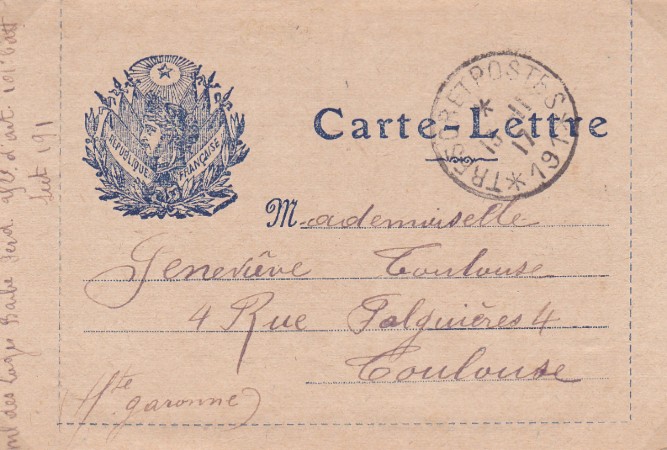 RÉPUBLIQUE FRANÇAISE
Carte-Lettre
TRESOR ET POSTES
* 191 *
Mademoiselle
Geneviève Toulouse
4 Rue Palquières 4
Toulouse
Hte
garonne
des Loges Barbe d'art. 101e Batt
Sect 191